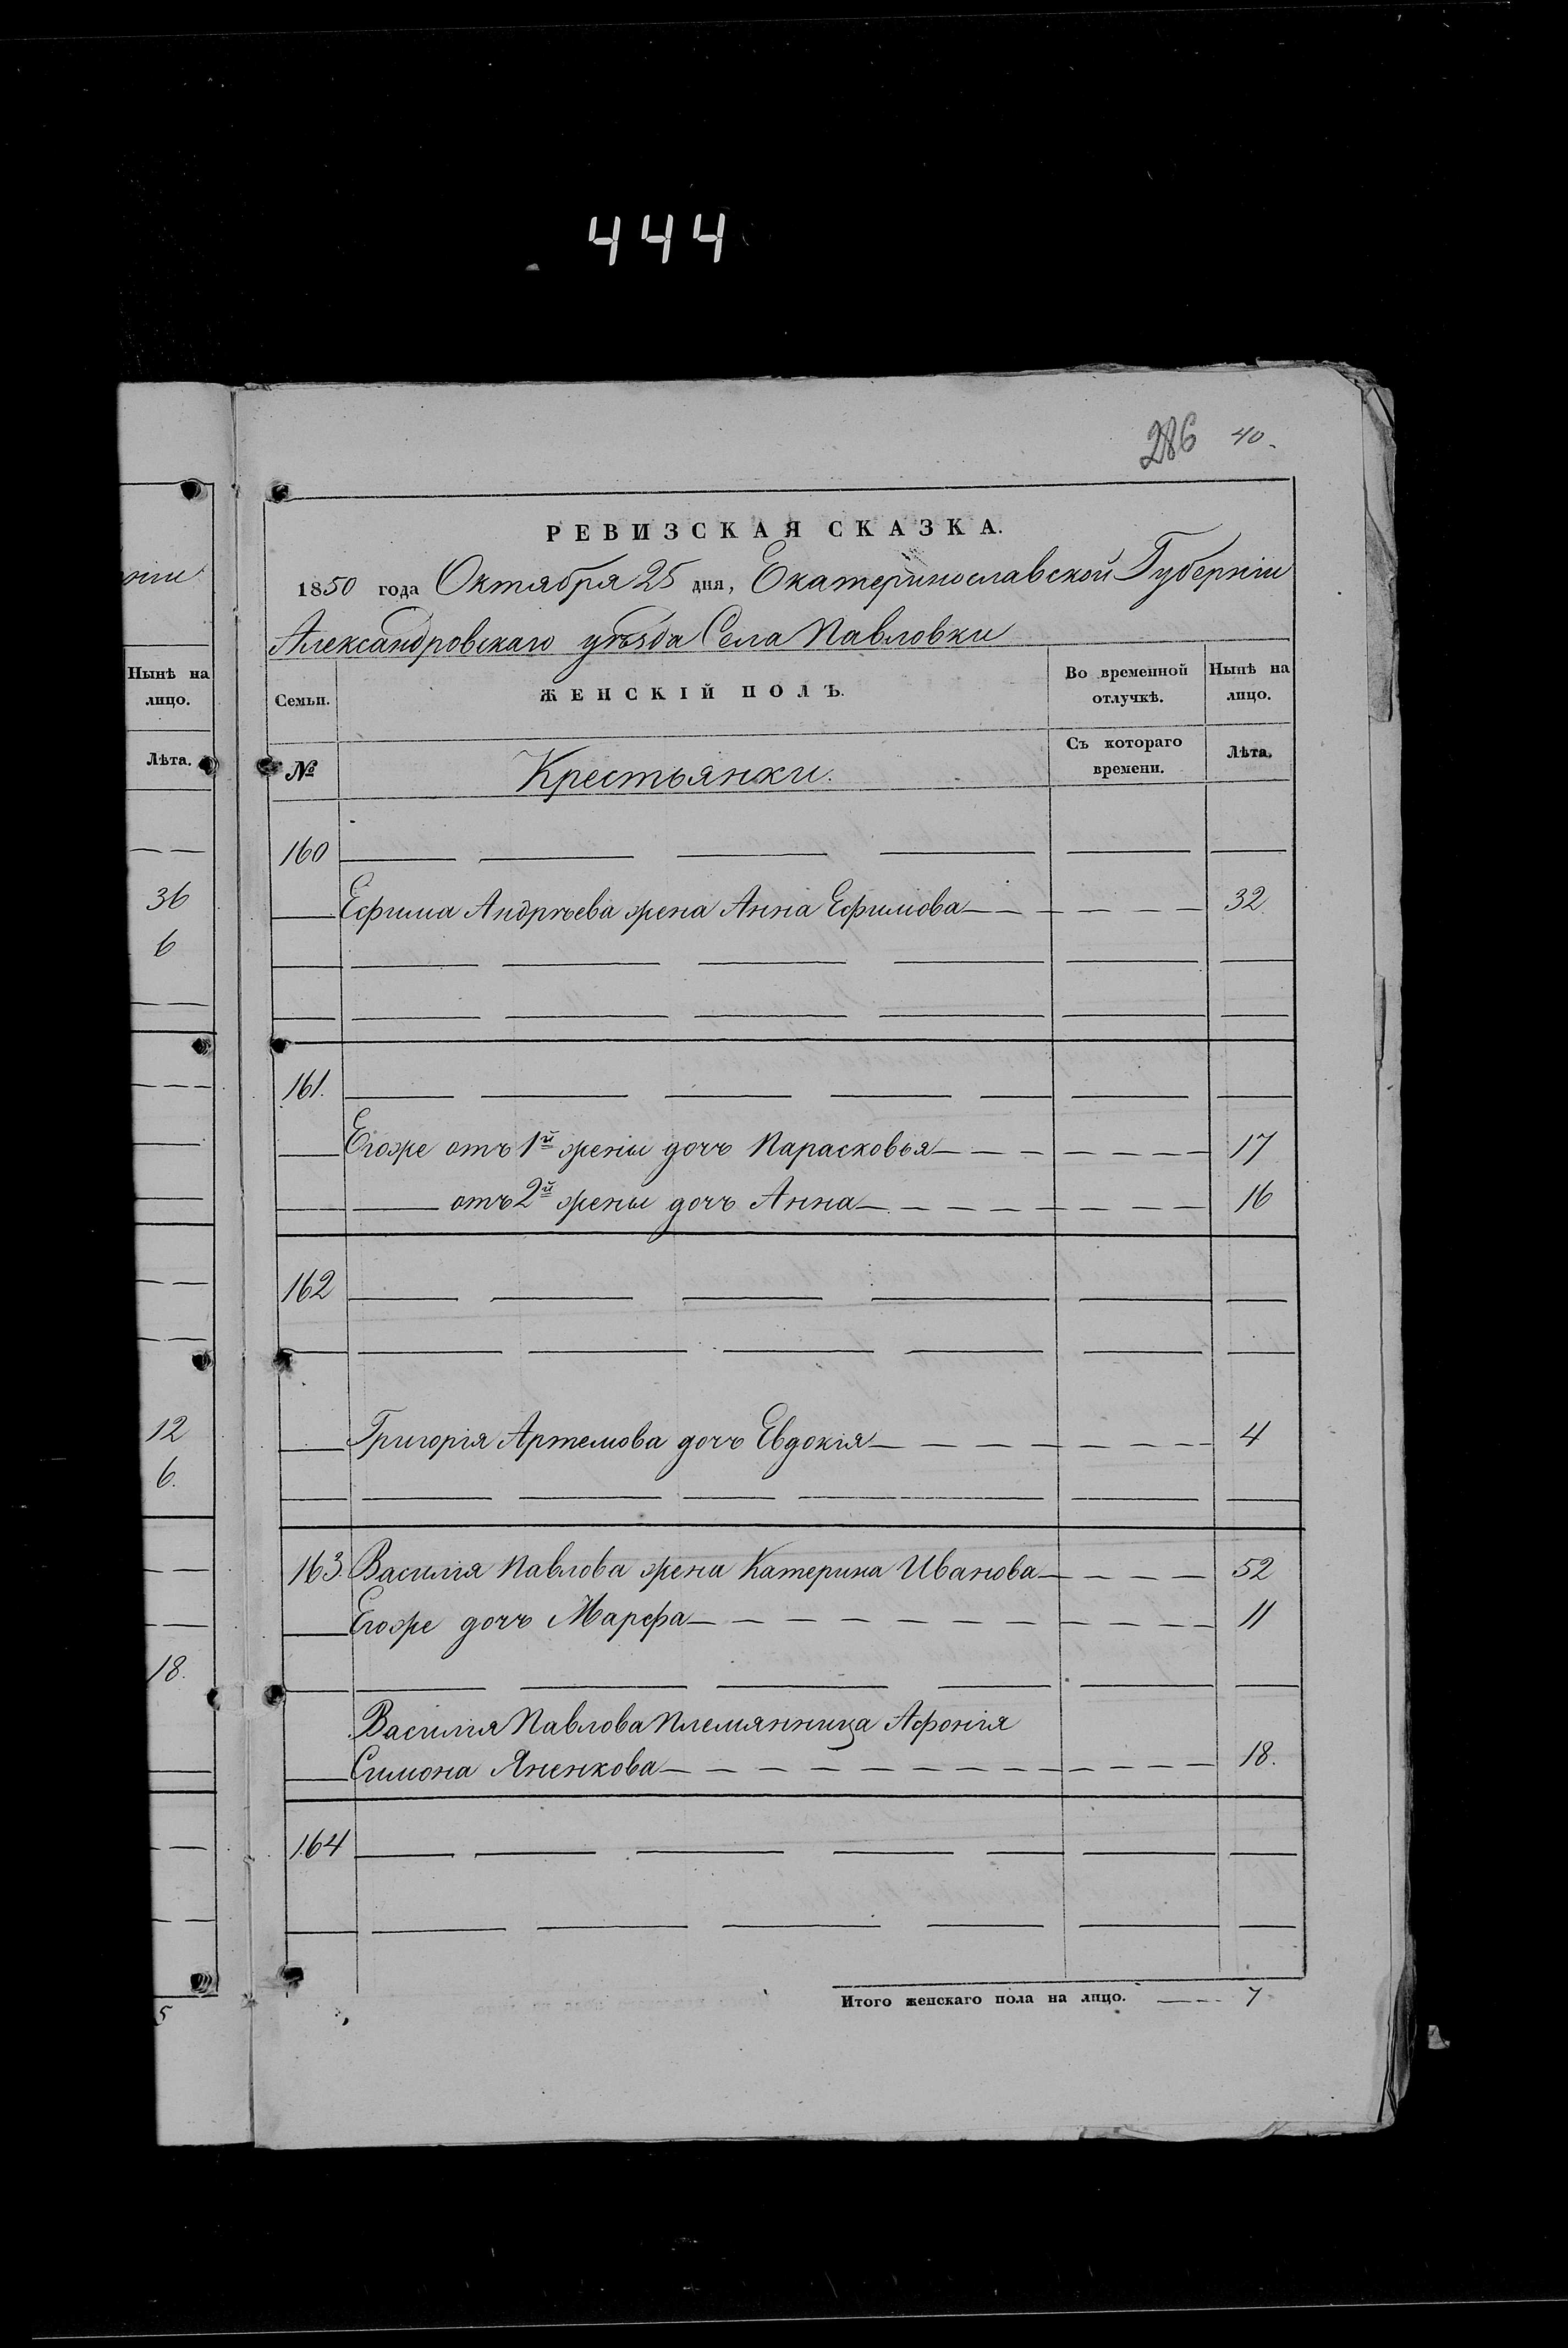 444
286 40.
оніи
Нынѣ на
лицо.
Лѣта.
36
6
12
6.
18.
5
РЕВИЗСКАЯ СКАЗКА.
1850 года Октября 25 дня, Екатеринославской Губерніи
Александровскаго уѣзда Села Павловки
Семьи. ЖЕНСКІЙ ПОЛЪ. Во временной отлучкѣ. Нынѣ на лицо.
№ Крестьянки. Съ котораго времени. Лѣта.
160
Ефима Андрѣева жена Анна Ефимова 32
161.
Егоже отъ 1й жены дочь Парасковья 17
отъ 2й жены дочь Анна 16
162
Григорія Артемова дочь Евдокія 4
163. Василія Павлова жена Катерина Иванова 52
Егоже дочь Марфа 11
Василія Павлова племянница Афонія
Симона Яненкова 18.
164
Итого женскаго пола на лицо. 7